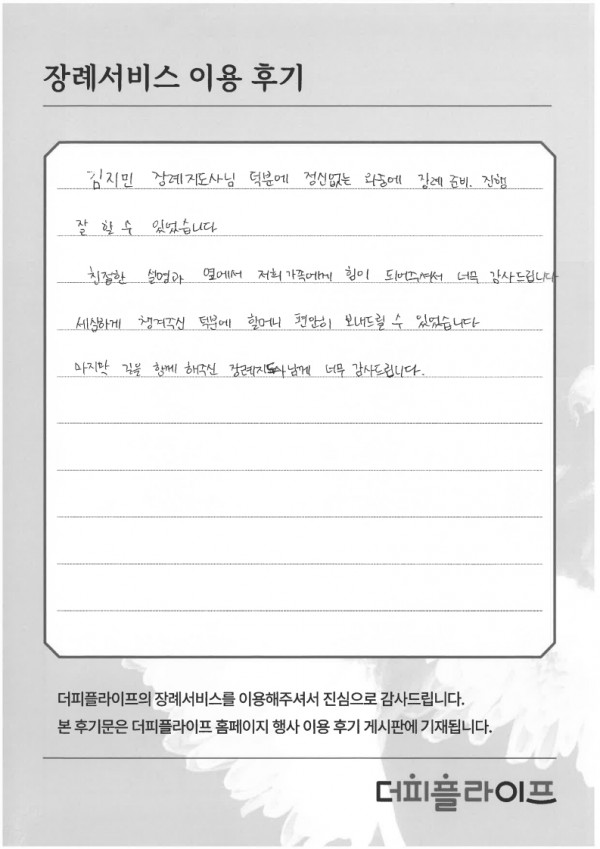 장례서비스 이용 후기
김지민 장례지도사님 덕분에 정신없는 와중에 장례 준비. 진행
잘 할 수 있었습니다
친절한 설명과 옆에서 저희 가족에게 힘이 되어주셔서 너무 감사드립니다
세심하게 챙겨주신 덕분에 할머니 편안히 보내드릴 수 있었습니다
마지막 길을 함께 해주신 장례지도사님께 너무 감사드립니다.
더피플라이프의 장례서비스를 이용해주셔서 진심으로 감사드립니다.
본 후기문은 더피플라이프 홈페이지 행사 이용 후기 게시판에 기재됩니다.
더피플라이프